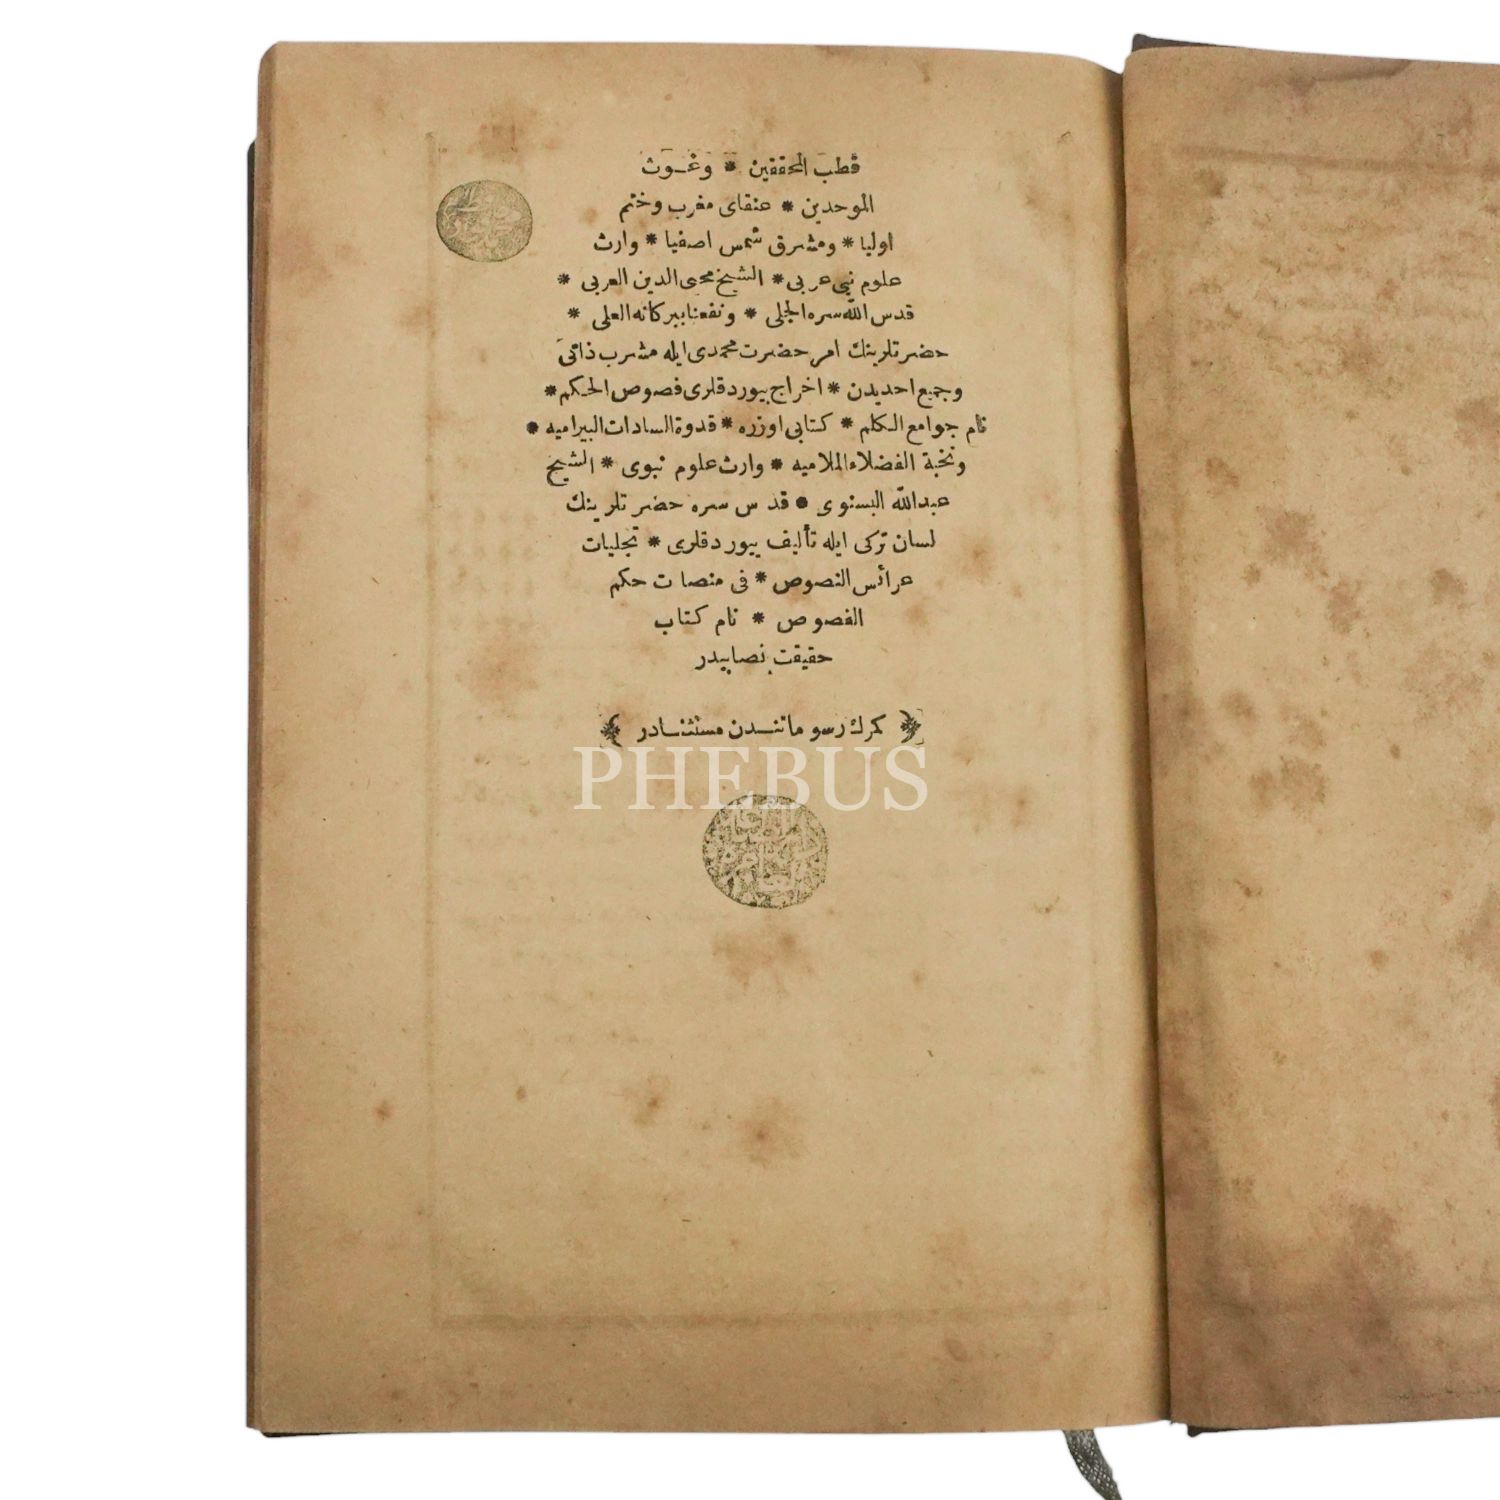 قطب المحققين * وغوث
الموحدين * عنقاى مغرب وختم
اوليا * ومشرق شمس اصفيا * وارث
علوم نبى عربى * الشيخ محيى الدين العربى *
قدس الله سره الجلى * ونفعنا ببركاته العلى *
حضرتلرينك امر حضرت محمدى ايله مشرب ذاتى
وجميع احديدن * اخراج بيوردقلرى فصوص الحكم *
نام جوامع الكلم * كتابى اوزره * قدوة السادات البيراميه *
ونخبة الفضلاء الملاميه * وارث علوم نبوى * الشيخ
عبد الله البسنوى * قدس سره حضرتلرينك
لسان تركى ايله تأليف بيوردقلرى * تجليات
عرائس النصوص * فى منصات حكم
الفصوص * نام كتاب
حقيقت نصابيدر
كمرك رسوماتندن مستثنادر
PHEBUS